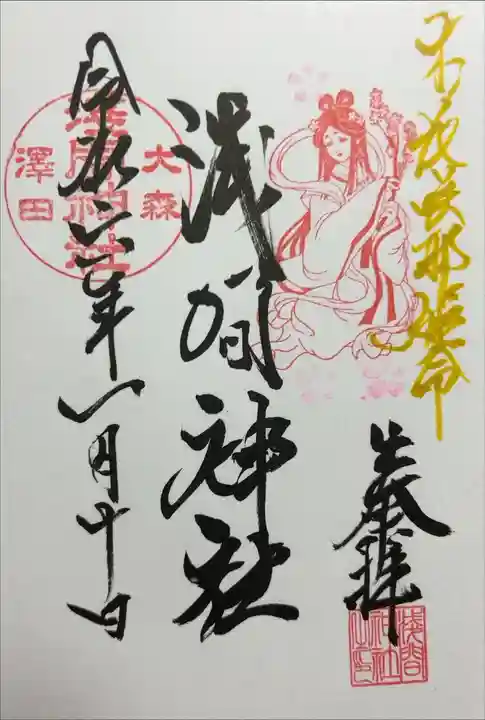 木之花咲耶姫命
奉拝
浅間
神社
之印
浅間神社
大森
浅間神社
澤田
令和六年一月十日